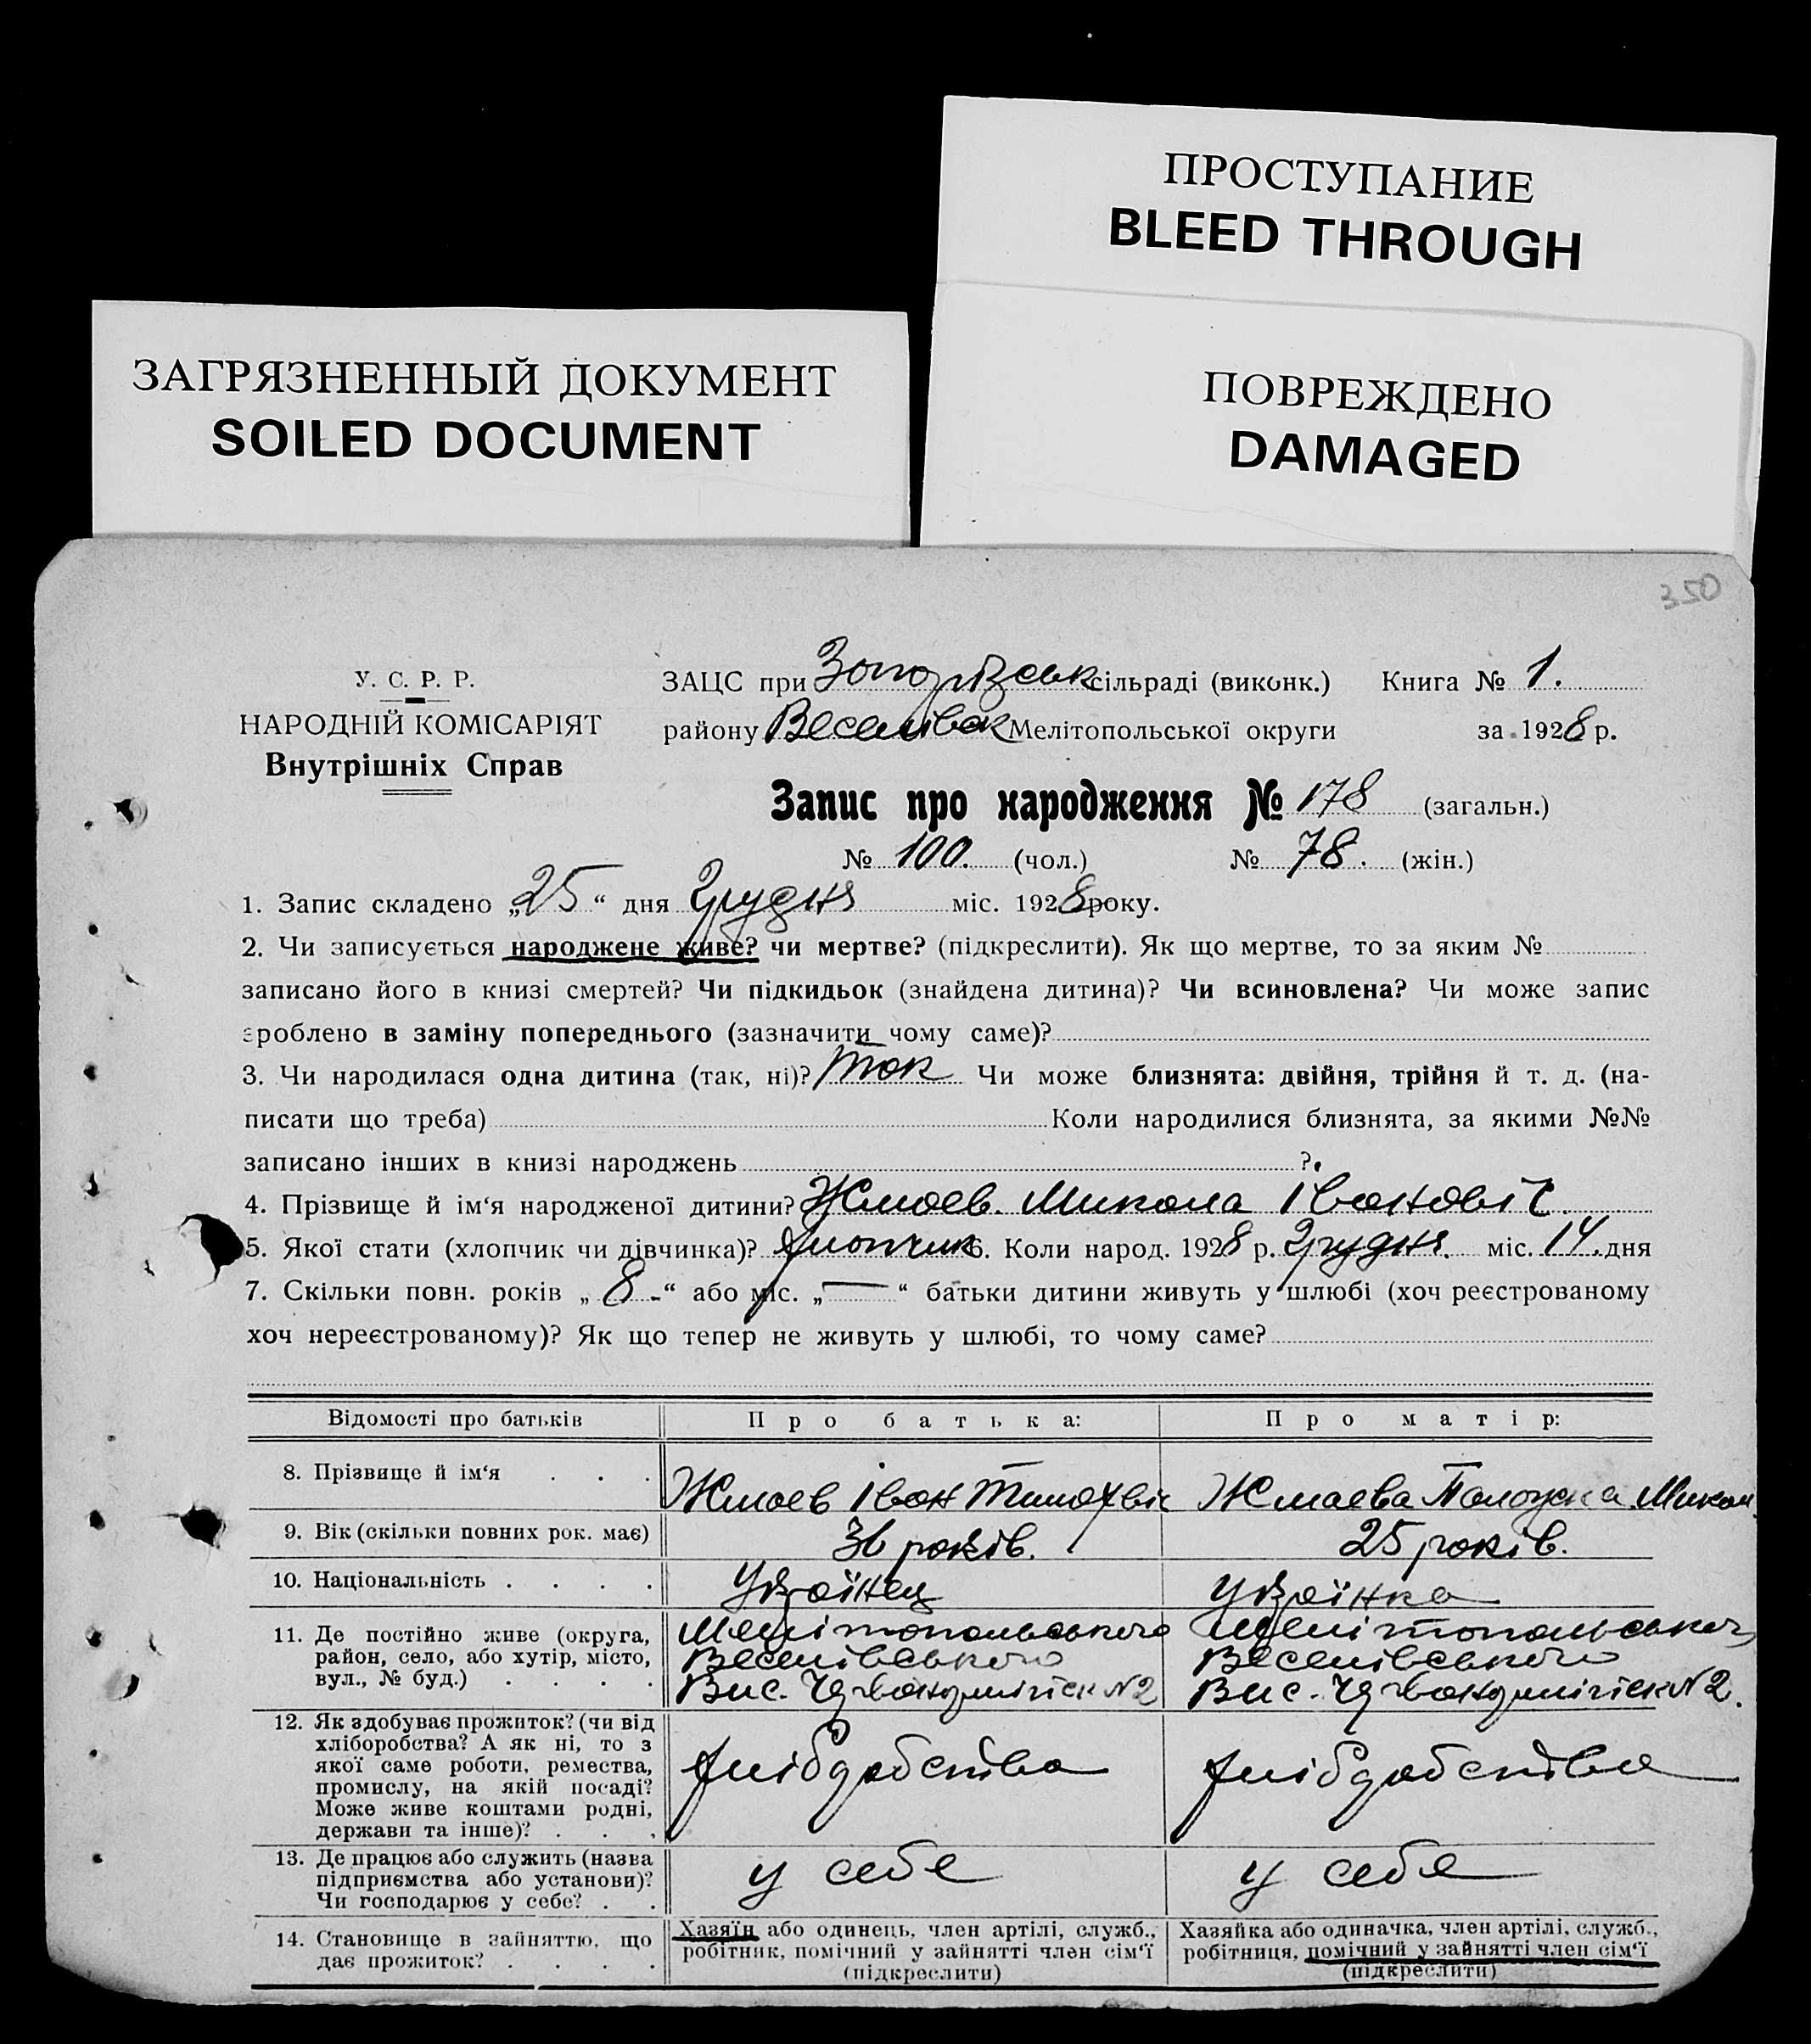 ПРОСТУПАНИЕ
BLEED THROUGH
ЗАГРЯЗНЕННЫЙ ДОКУМЕНТ
SOILED DOCUMENT
ПОВРЕЖДЕНО
DAMAGED
350
У. С. Р. Р.
НАРОДНІЙ КОМІСАРІЯТ
Внутрішніх Справ
ЗАЦС при сільраді (виконк.) Книга № 1.
району Веселівск Мелітопольської округи за 1928 р.
Запис про народження № 178 (загальн.)
№ 100. (чол.) № 78. (жін.)
1. Запис складено „25“ дня Грудня міс. 1928 року.
2. Чи записується народжене живе? чи мертве? (підкреслити). Як що мертве, то за яким №
записано його в книзі смертей? Чи підкидьок (знайдена дитина)? Чи всиновлена? Чи може запис
зроблено в заміну попереднього (зазначити чому саме)?
3. Чи народилася одна дитина (так, ні)? так Чи може близнята: двійня, трійня й т. д. (на-
писати що треба) Коли народилися близнята, за якими №№
записано інших в книзі народжень ?
4. Прізвище й ім‘я народженої дитини? Жмаев. Микола Івановіч.
5. Якої стати (хлопчик чи дівчинка)? хлопчик 6. Коли народ. 1928 р. Грудня. міс. 14. дня
7. Скільки повн. років „8-“ або міс. „—“ батьки дитини живуть у шлюбі (хоч реєстрованому
хоч нереєстрованому)? Як що тепер не живуть у шлюбі, то чому саме?
Відомості про батьків Про батька: Про матір:
8. Прізвище й ім‘я . . . Жмаев Іван Жмаева
9. Вік (скільки повних рок. має) 36 років. 25 років.
10. Національність . . . . Украінец Украінка
11. Де постійно живе (округа, Мелітопольського Мелітопольського
район, село, або хутір, місто, Веселівського Веселівського
вул., № буд.) . . . . Вис. №2 Вис. №2.
12. Як здобуває прожиток? (чи від
хліборобства? А як ні, то з
якої саме роботи, ремества, хлібробство хлібробство
промислу, на якій посаді?
Може живе коштами родні,
держави та інше)? . . .
13. Де працює або служить (назва у себе у себе
підприємства або установи)?
Чи господарює у себе? . .
14. Становище в зайняттю, що
дає прожиток? . . . .
Хазяїн або одинець, член артілі, служб.,
робітник, помічний у зайнятті член сім‘ї
(підкреслити)
Хазяйка або одиначка, член артілі, служб.,
робітниця, помічний у зайнятті член сім‘ї
(підкреслити)